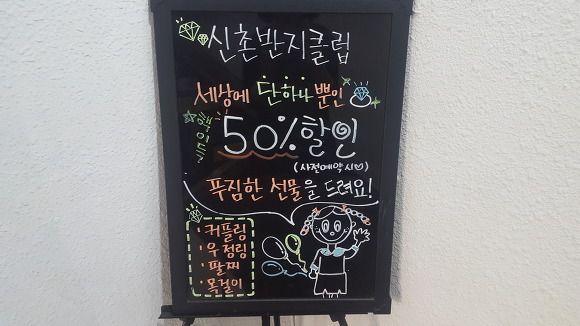 신촌반지클럽
세상에 단하나 뿐인
핵인돌
50%할인
(사전예약시♡)
푸짐한 선물을 드려요!
· 커플링
· 우정링
· 팔찌
· 목걸이